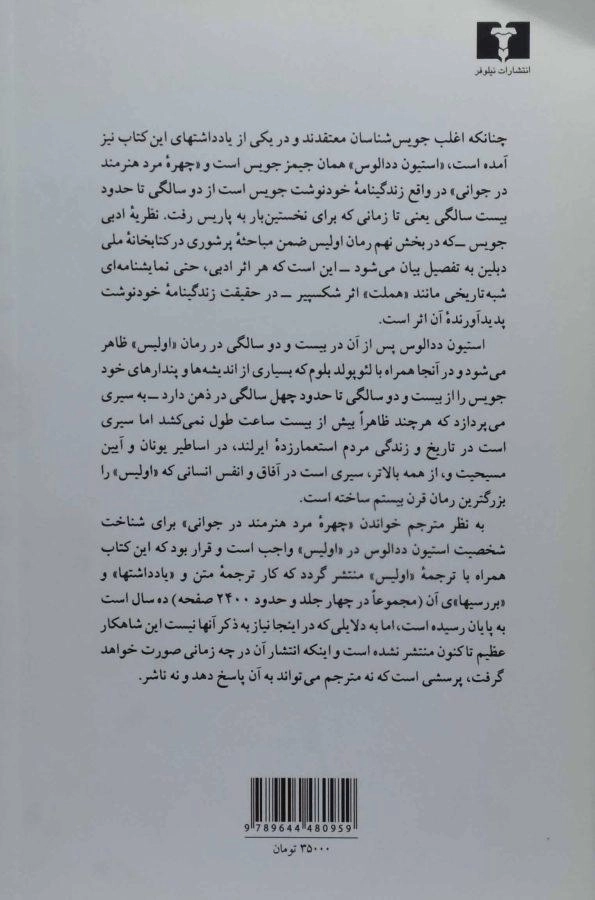 انتشارات نیلوفر
چنانکه اغلب جویس‌شناسان معتقدند و در یکی از یادداشتهای این کتاب نیز
آمده است، «استیون ددالوس» همان جیمز جویس است و «چهرهٔ مرد هنرمند
در جوانی» در واقع زندگینامهٔ خودنوشت جویس است از دو سالگی تا حدود
بیست سالگی یعنی تا زمانی که برای نخستین‌بار به پاریس رفت. نظریهٔ ادبی
جویس ــ که در بخش نهم رمان اولیس ضمن مباحثهٔ پرشوری در کتابخانهٔ ملی
دبلین به تفصیل بیان می‌شود ــ این است که هر اثر ادبی، حتی نمایشنامه‌ای
شبه‌تاریخی مانند «هملت» اثر شکسپیر ــ در حقیقت زندگینامهٔ خودنوشت
پدیدآورندهٔ آن اثر است.
استیون ددالوس پس از آن در بیست و دو سالگی در رمان «اولیس» ظاهر
می‌شود و در آنجا همراه با لئوپولد بلوم که بسیاری از اندیشه‌ها و پندارهای خود
جویس را از بیست و دو سالگی تا حدود چهل سالگی در ذهن دارد ــ به سیری
می‌پردازد که هرچند ظاهراً بیش از بیست ساعت طول نمی‌کشد اما سیری
است در تاریخ و زندگی مردم استعمارزدهٔ ایرلند، در اساطیر یونان و آیین
مسیحیت و، از همه بالاتر، سیری است در آفاق و انفس انسانی که «اولیس» را
بزرگترین رمان قرن بیستم ساخته است.
به نظر مترجم خواندن «چهرهٔ مرد هنرمند در جوانی» برای شناخت
شخصیت استیون ددالوس در «اولیس» واجب است و قرار بود که این کتاب
همراه با ترجمهٔ «اولیس» منتشر گردد که کار ترجمهٔ متن و «یادداشتها» و
«بررسیها»ی آن (مجموعاً در چهار جلد و حدود ۲۴۰۰ صفحه) ده سال است
به پایان رسیده است، اما به دلایلی که در اینجا نیاز به ذکر آنها نیست این شاهکار
عظیم تاکنون منتشر نشده است و اینکه انتشار آن در چه زمانی صورت خواهد
گرفت، پرسشی است که نه مترجم می‌تواند به آن پاسخ دهد و نه ناشر.
9 789644 480959
۳۵۰۰۰ تومان